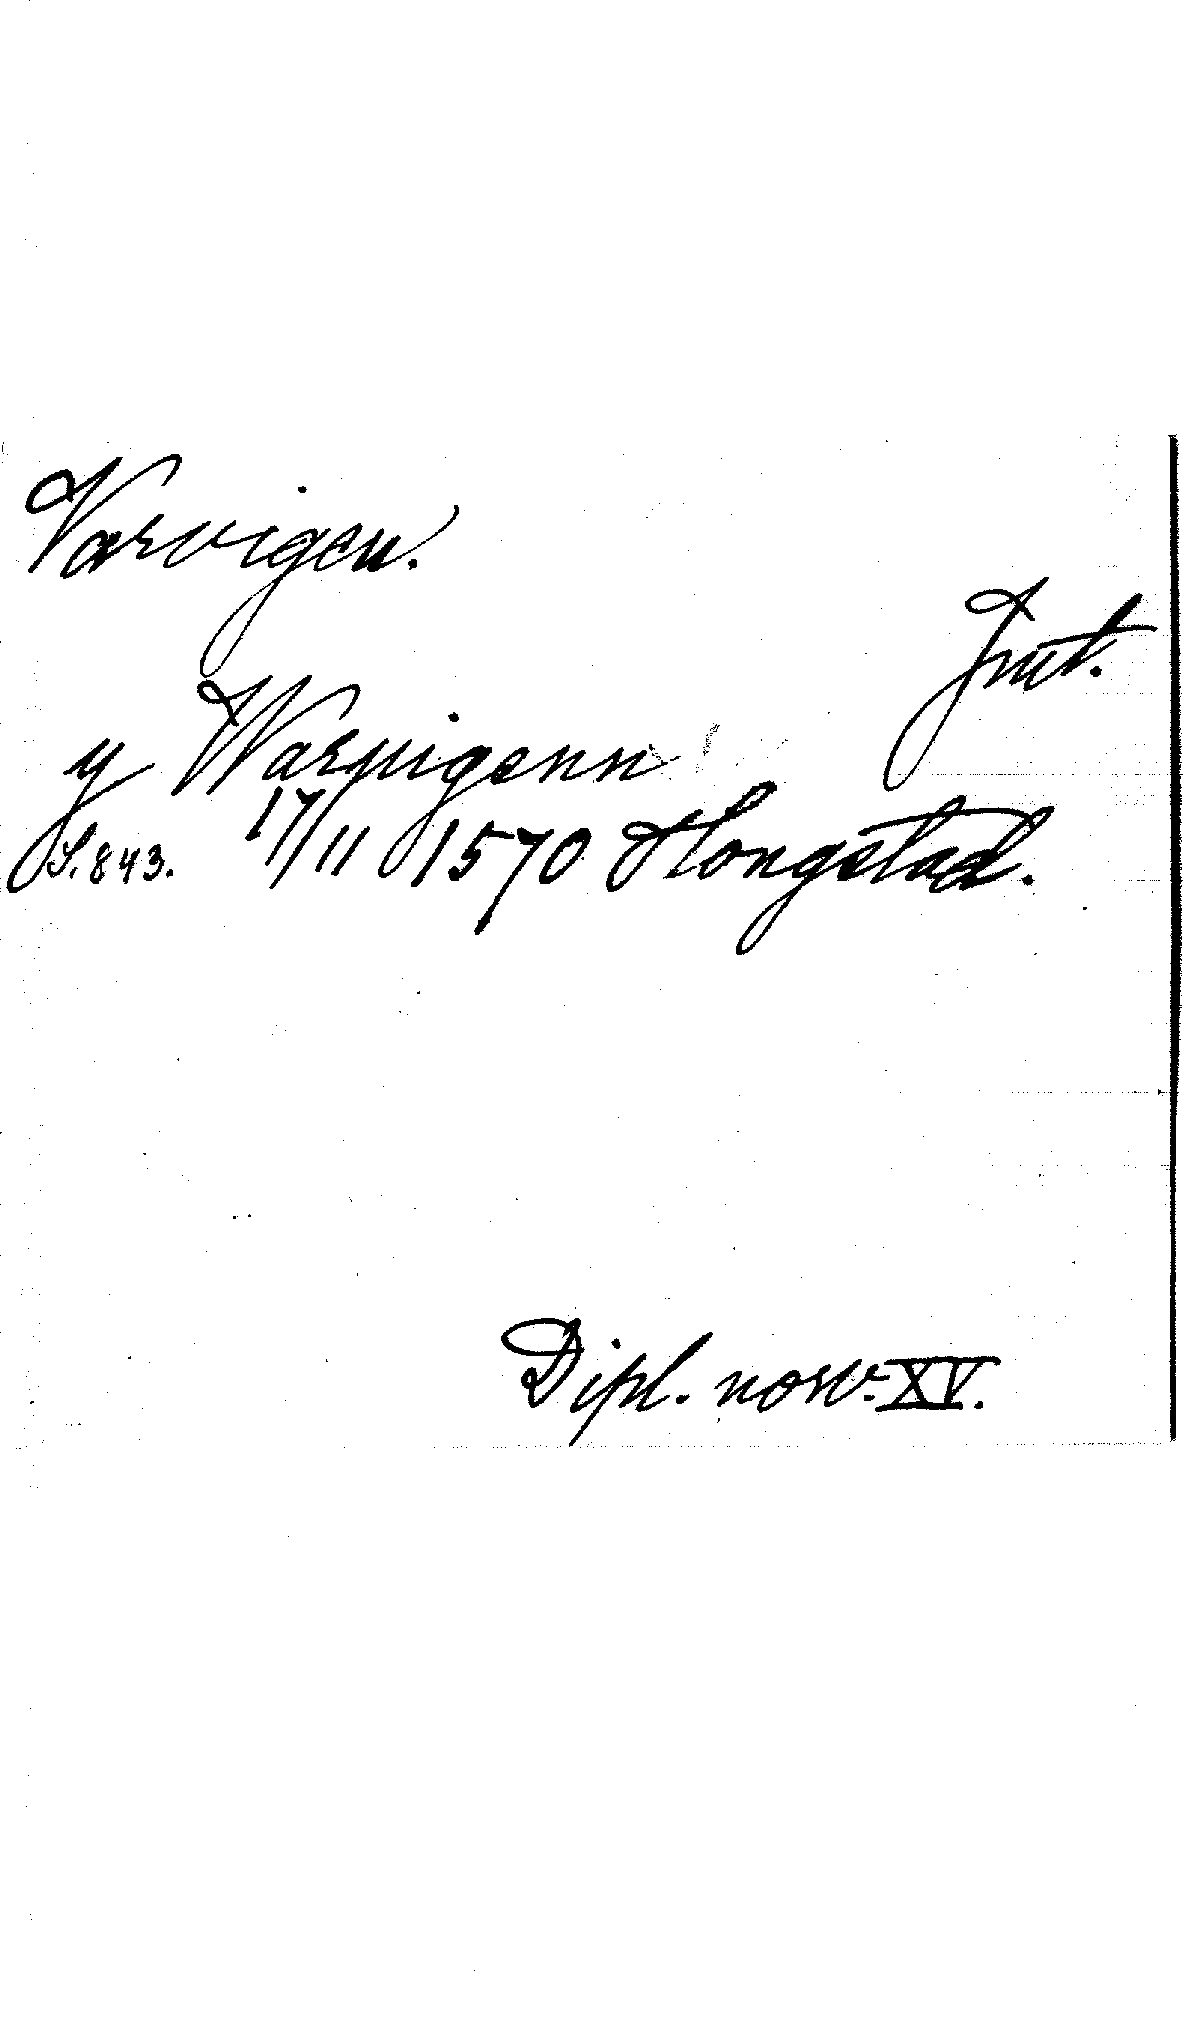 Varvigen.
Jmt.
y Warvigenn
S. 843. 17/11 1570 Hongstad.
Dipl. norv. XV.